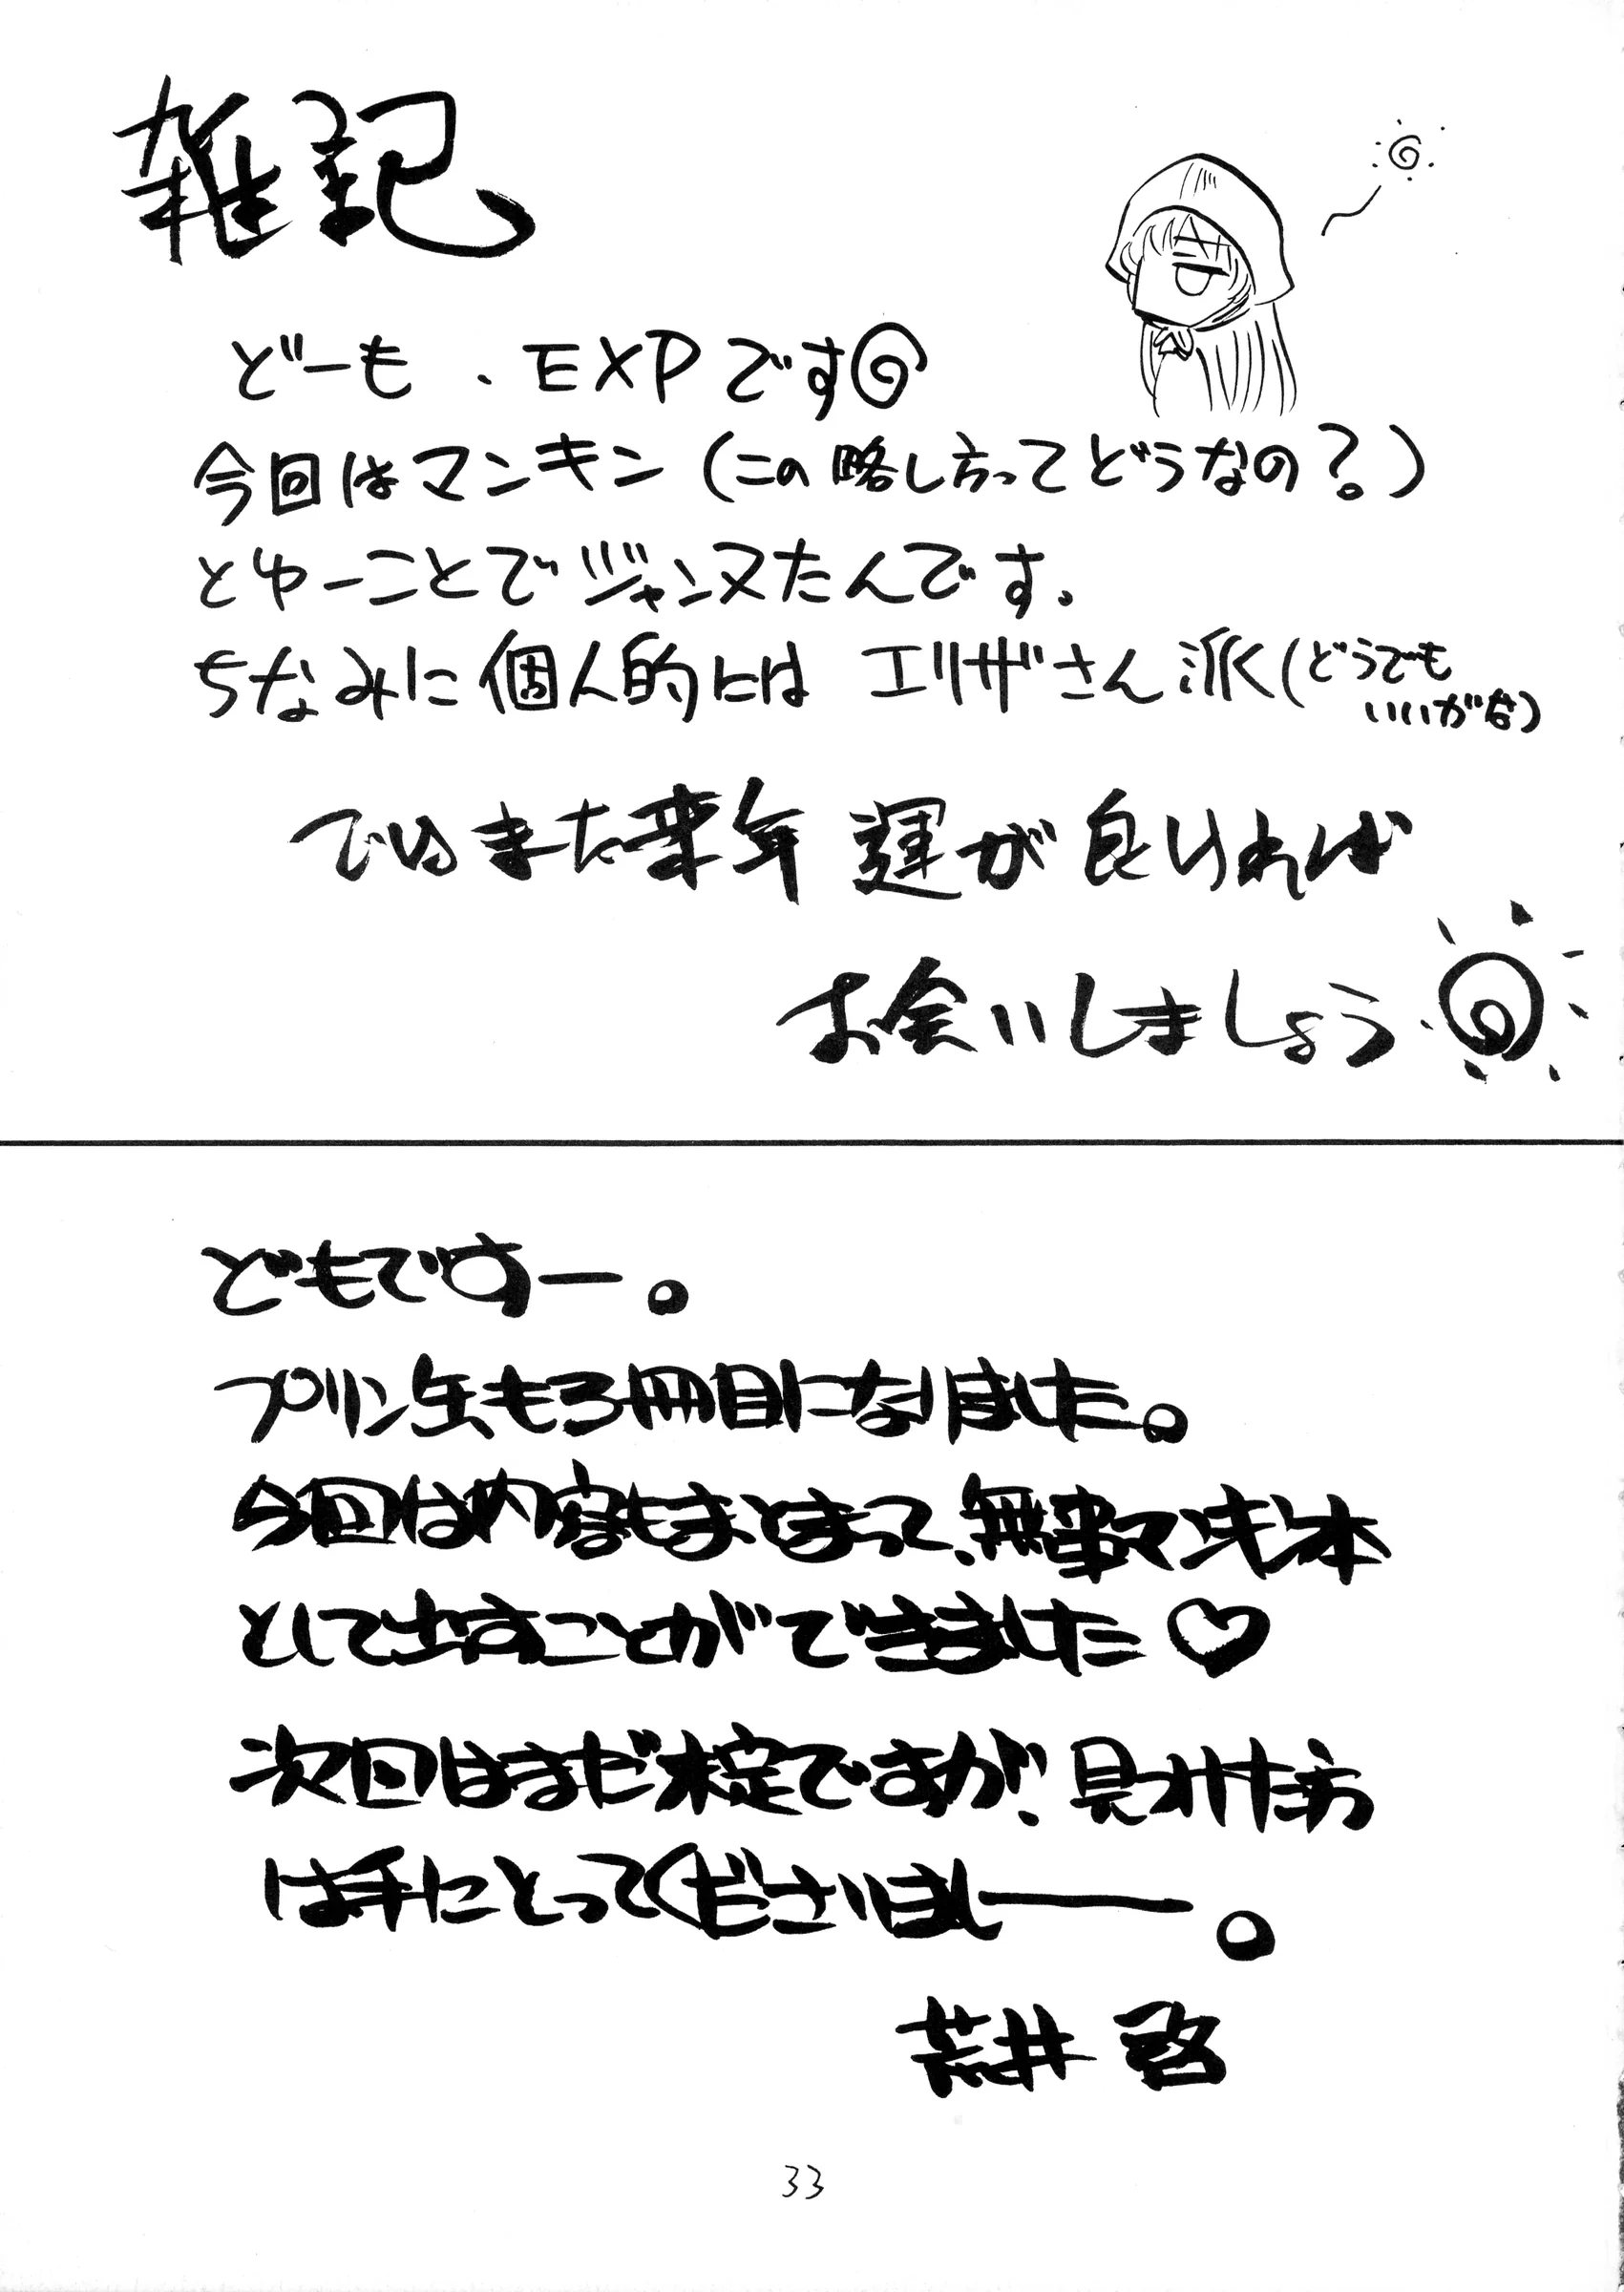 雑記
どーも、EXPです
今回はマンキン(この略し方ってどうなの?)
とゆーことでジャンヌたんです。
ちなみに個人的にはエリザさん派(どうでも
いいがな)
ではまた来年運が良ければ
お会いしましょう
どもですー。
プリン缶も3冊目になりました。
今回は内容もまとまって、無事マンキン本
として出すことができました♡
次回はまだ未定ですが、見かけた方
は手にとってくださいましー。
荒井 啓
33